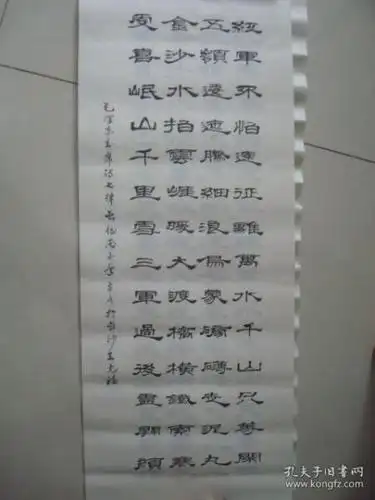 紅軍不怕遠征難萬水千山只等閑
五嶺逶迤騰細浪烏蒙磅礴走泥丸
金沙水拍雲崖暖大渡橋橫鐵索寒
更喜岷山千里雪三軍過後盡開顏
毛澤東主席詩七律長征
孔夫子旧书网